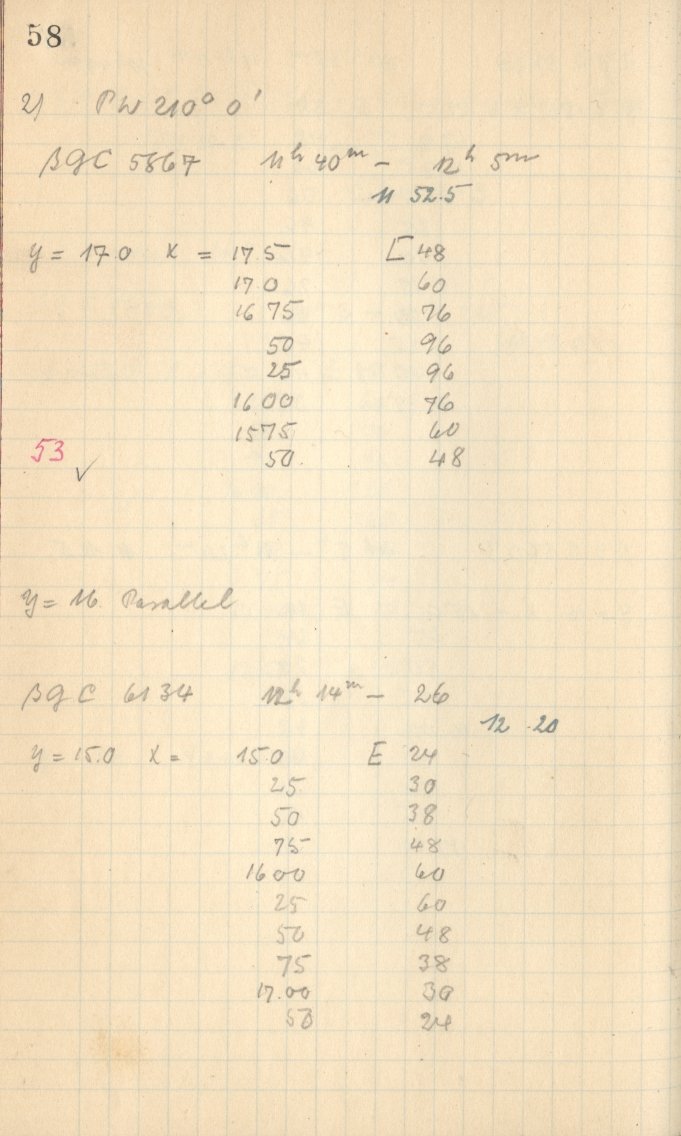 58
2) PW 210° 0'
βGC 5867 11h 40m – 12h 5m
11 52.5
y = 17.0 x = 17 5 E 48
17 0 60
16 75 76
50 96
25 96
16 00 76
15 75 60
53 ✓ 50 48
y = 16 Parallel
βGC 6134 12h 14m – 26
12 20
y = 15.0 x = 15.0 E 24
25 30
50 38
75 48
16 00 60
25 60
50 48
75 38
17.00 30
50 24